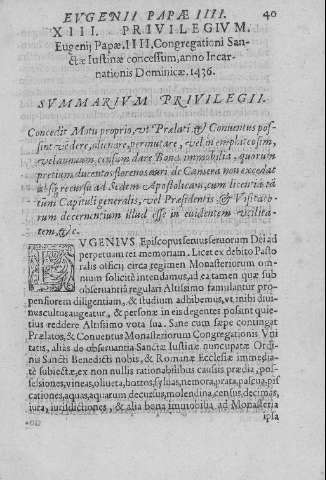 EVGENII PAPÆ IIII. 40
XIII. PRIVILEGIVM.
Eugenij Papæ, IIII, Congregationi San-
ctæ Iustinæ concessum, anno Incar-
nationis Dominicæ. 1436.
SVMMARIVM PRIVILEGII.
Concedit Motu proprio, vt Prælati, & Conuentus pos-
sint vēdere, alienare, permutare, vel in emphiteosim,
vel annuum censum dare Bona immobilia, quorum
pretium ducentos florenos auri de Camera non excedat
absq; recursu ad Sedem Apostolicam, cum licentia tā
tùm Capituli generalis, vel Præsidentis, & Visitato-
rum decernentium illud esse in euidentem vtilita-
tem, &c.
EVGENIVS Episcopus seruus seruorum Dei ad
perpetuam rei memoriam. Licet ex debito Pasto
ralis officij circa regimen Monasteriorum om
nium solicitè intendamus, ad ea tamen quæ sub
obseruantia regulari Altissimo famulantur pro-
pensiorem diligentiam, & studium adhibemus, vt inibi diui-
nus cultus augeatur, & personæ in eis degentes possint quie-
tius reddere Altissimo vota sua. Sane cum sæpe contingat
Prælatos, & Conuentus Monasteriorum Congregationis Vni
tatis, alias de obseruantia Sanctæ Iustinæ nuncupatæ Ordi-
nis Sancti Benedicti nobis, & Romanæ Ecclesiæ immedia-
tè subiectæ, ex non nullis rationabilibus causis prædia, pos-
sessiones, vineas, oliueta, hortos, syluas, nemora, prata, pascua, pis
cationes, aquas, aquarum decursus, molendina, census, decimas,
iura, iurisdictiones, & alia bona immobilia ad Monasteria
ipsa